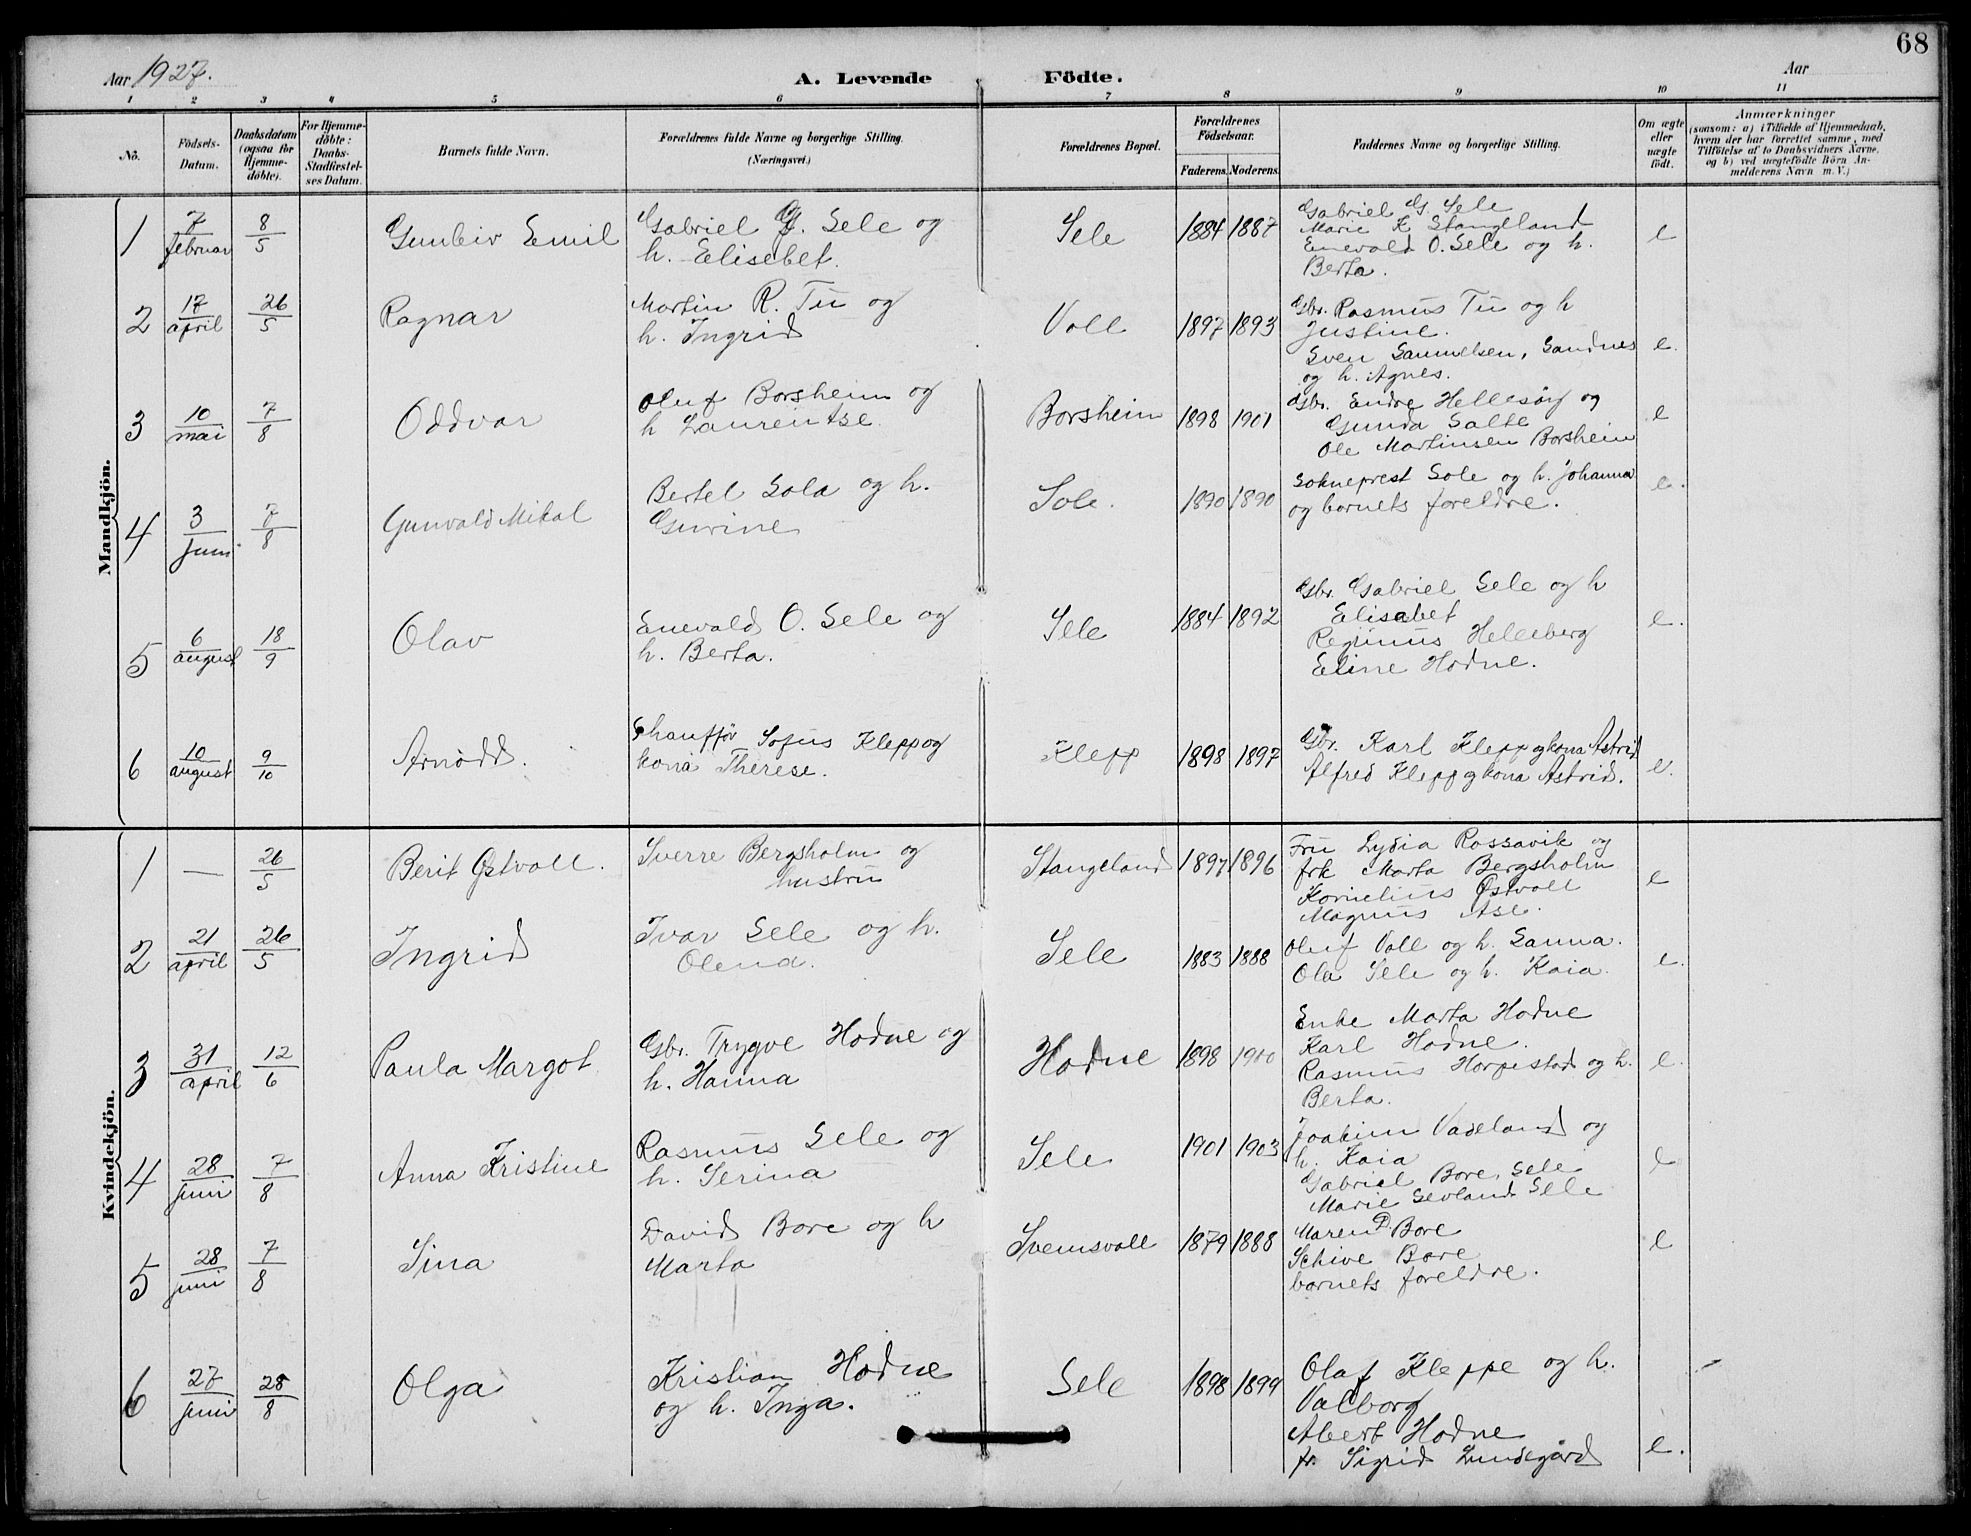 68
Aar 1927.
A. Levende Födte.
Aar
1 2 3 4 5 6 7 8 9 10 11
No.
Födsels-Datum.
Daabsdatum (ogsaa for Hjemme-döbte).
For Hjemme-döbte: Daabs-Stadfæstel-ses Datum.
Barnets fulde Navn.
Forældrenes fulde Navne og borgerlige Stilling.
(Næringsvei.)
Forældrenes Bopæl.
Forældrenes Födselsaar.
Faderens. Moderens.
Faddernes Navne og borgerlige Stilling.
Om ægte eller uægte födt.
Anmærkninger
(saasom: a) i Tilfælde af Hjemmedaab, hvem der har forrettet samme, med Tilföielse af to Daabsvidners Navne, og b) ved uægtefödte Börn An-melderens Navn m. V.)
Mandkjön.
1 7/februar 8/5 Gunleiv Emil
Gabriel G. Sele og
h. Elisebet.
Sele 1884 1887
Gabriel G. Sele
Marie K Stangeland
Enevald O. Sele og h.
Berta.
e
2 17/april 26/5 Ragnar
Martin R. Tu og
h. Ingrid
Voll 1897 1893
Gbr. Rasmus Tu og h
Justine.
Sven Samuelsen, Sandnes
og h. Agnes.
e.
3 10/mai 7/8 Oddvar
Oluf Borsheim og
h Laurentse
Borsheim 1898 1901
Gbr. Endre Hellesöy og
Gunda Salte
Ole Martinsen Borsheim
e
4 3/juni 7/8 Gunvald Mikal
Bertel Sola og h.
Gurine
Sole. 1890 1890
Sokneprest Sole og h. Johanna
og barnets foreldre.
e.
5 6/august 18/9 Olav
Enevald O. Sele og
h. Berta.
Sele 1884 1892
Gbr. Gabriel Sele og h
Elisabet
Reginus Helleberg
Eline Hodne.
e.
6 10/august 9/10 Arnodd.
Chaufför Sofus Klepp og
kona Therese.
Klepp 1898 1897
Gbr. Karl Klepp og kona Astrid
Alfred Klepp og kona Astrid.
e.
Kvindekjön.
1 — 26/5 Berit Østvoll.
Sverre Bergsholm og
hustru
Stangeland 1897 1896
Fru Lydia Rossavik og
frk Marta Bergsholm
Kornelius Østvoll
Magnus Ase.
e
2 21/april 26/5 Ingrid
Ivar Sele og h.
Olena.
Sele 1883 1888
Oluf Voll og h. Sanna.
Ola Sele og h. Kaia.
e.
3 31/april 12/6 Paula Margot
Gbr. Trygve Hodne og
h. Hanna
Hodne 1898 1900
Enke Marta Hodne
Karl Hodne.
Rasmus Horpestad og h.
Berta.
e.
4 28/juni 7/8 Anna Kristine
Rasmus Sele og
h. Serina
Sele 1901 1903
Joakim Vadeland og
h. Kaia
Gabriel Bore, Sele
Marie Sevland Sele
e
5 28/juni 7/8 Sina
David Bore og h
Marta
Svensvoll 1879 1888
Maren P. Bore
Schive Bore
barnets foreldre.
e
6 27/juni 28/8 Olga
Kristian Hodne
og h. Inga.
Sele 1898 1899
Olaf Kleppe og h.
Valborg
Abert Hodne
fr. Sigrid Lundegård
e.